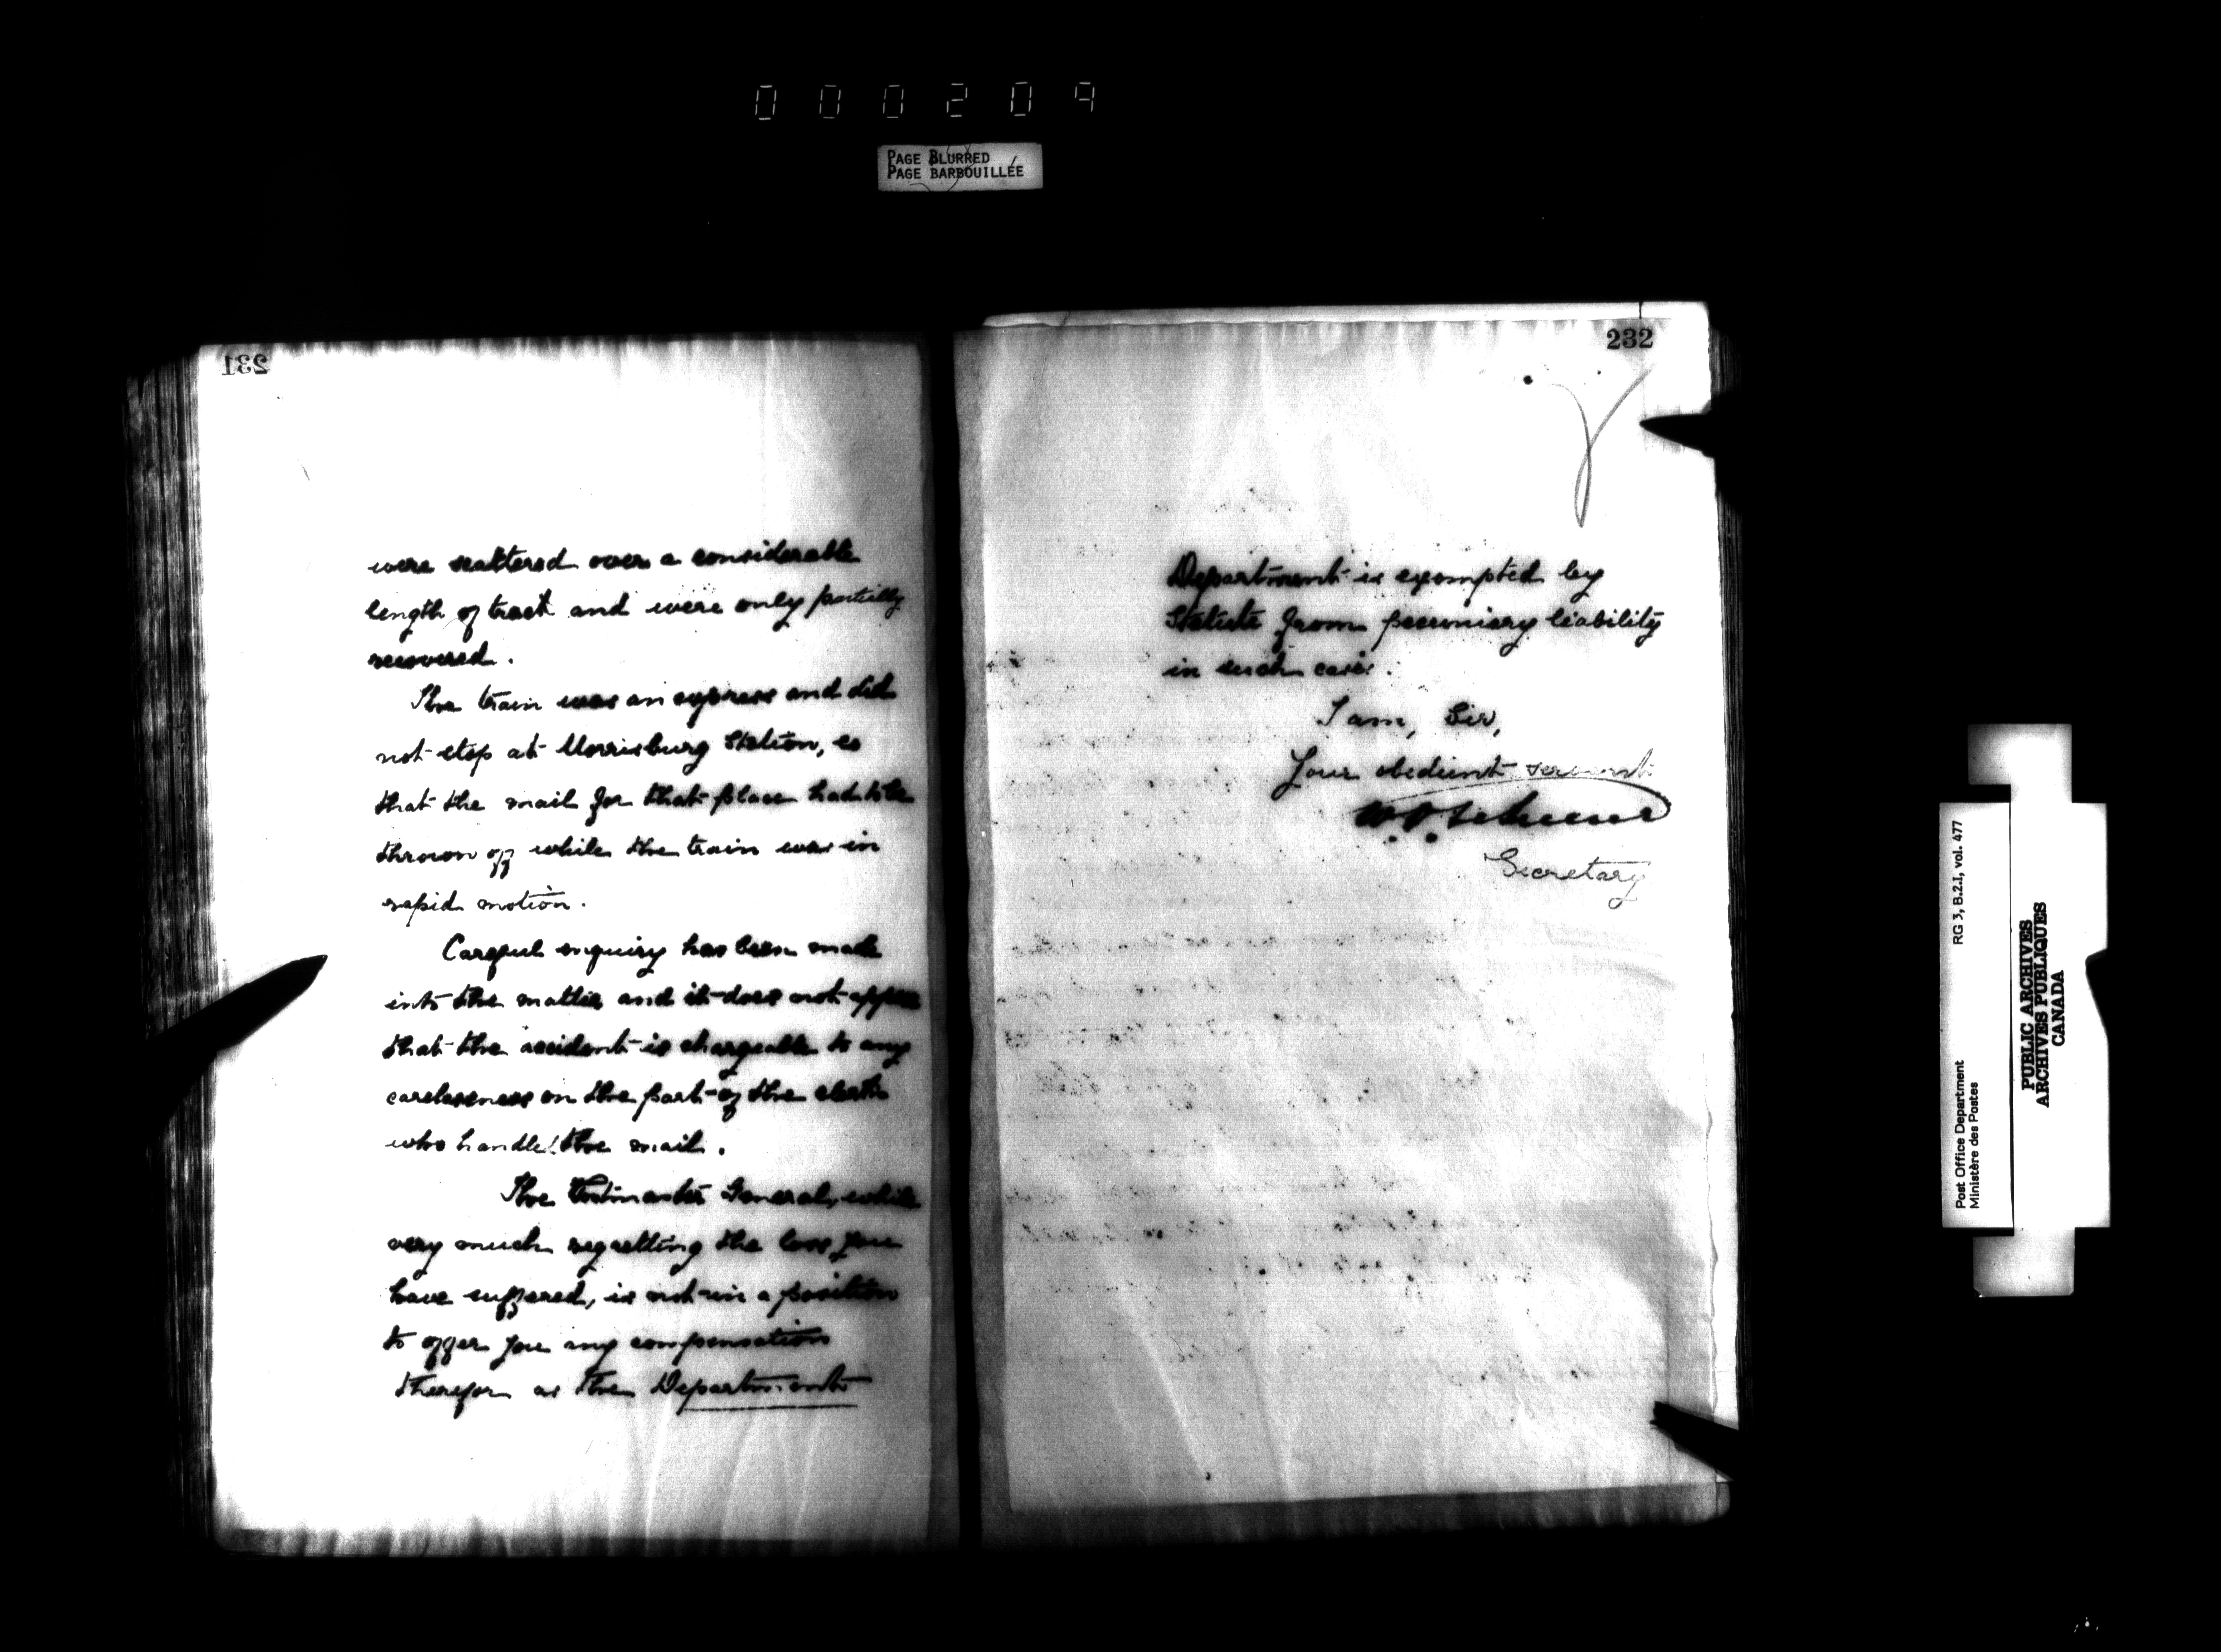 000209
PAGE BLURRED
PAGE BARBOUILLÉE
231
were scattered over a considerable
length of track and were only partially
recovered.
The train was an express and did
not stop at Morrisburg Station, so
that the mail for that place had to be
thrown off while the train was in
rapid motion.
Careful enquiry has been made
into the matter and it does not appear
that the accident is chargeable to any
carelessness on the part of the clerk
who handled the mail.
The Postmaster General, while
very much regretting the loss you
have suffered, is not in a position
to offer you any compensation
therefor as the Department
232
Department is exempted by
Statute from pecuniary liability
in such cases.
I am, Sir,
Your obedient servant
Secretary
Post Office Department
Ministère des Postes
RG 3, B.2.I, vol. 477
PUBLIC ARCHIVES
ARCHIVES PUBLIQUES
CANADA